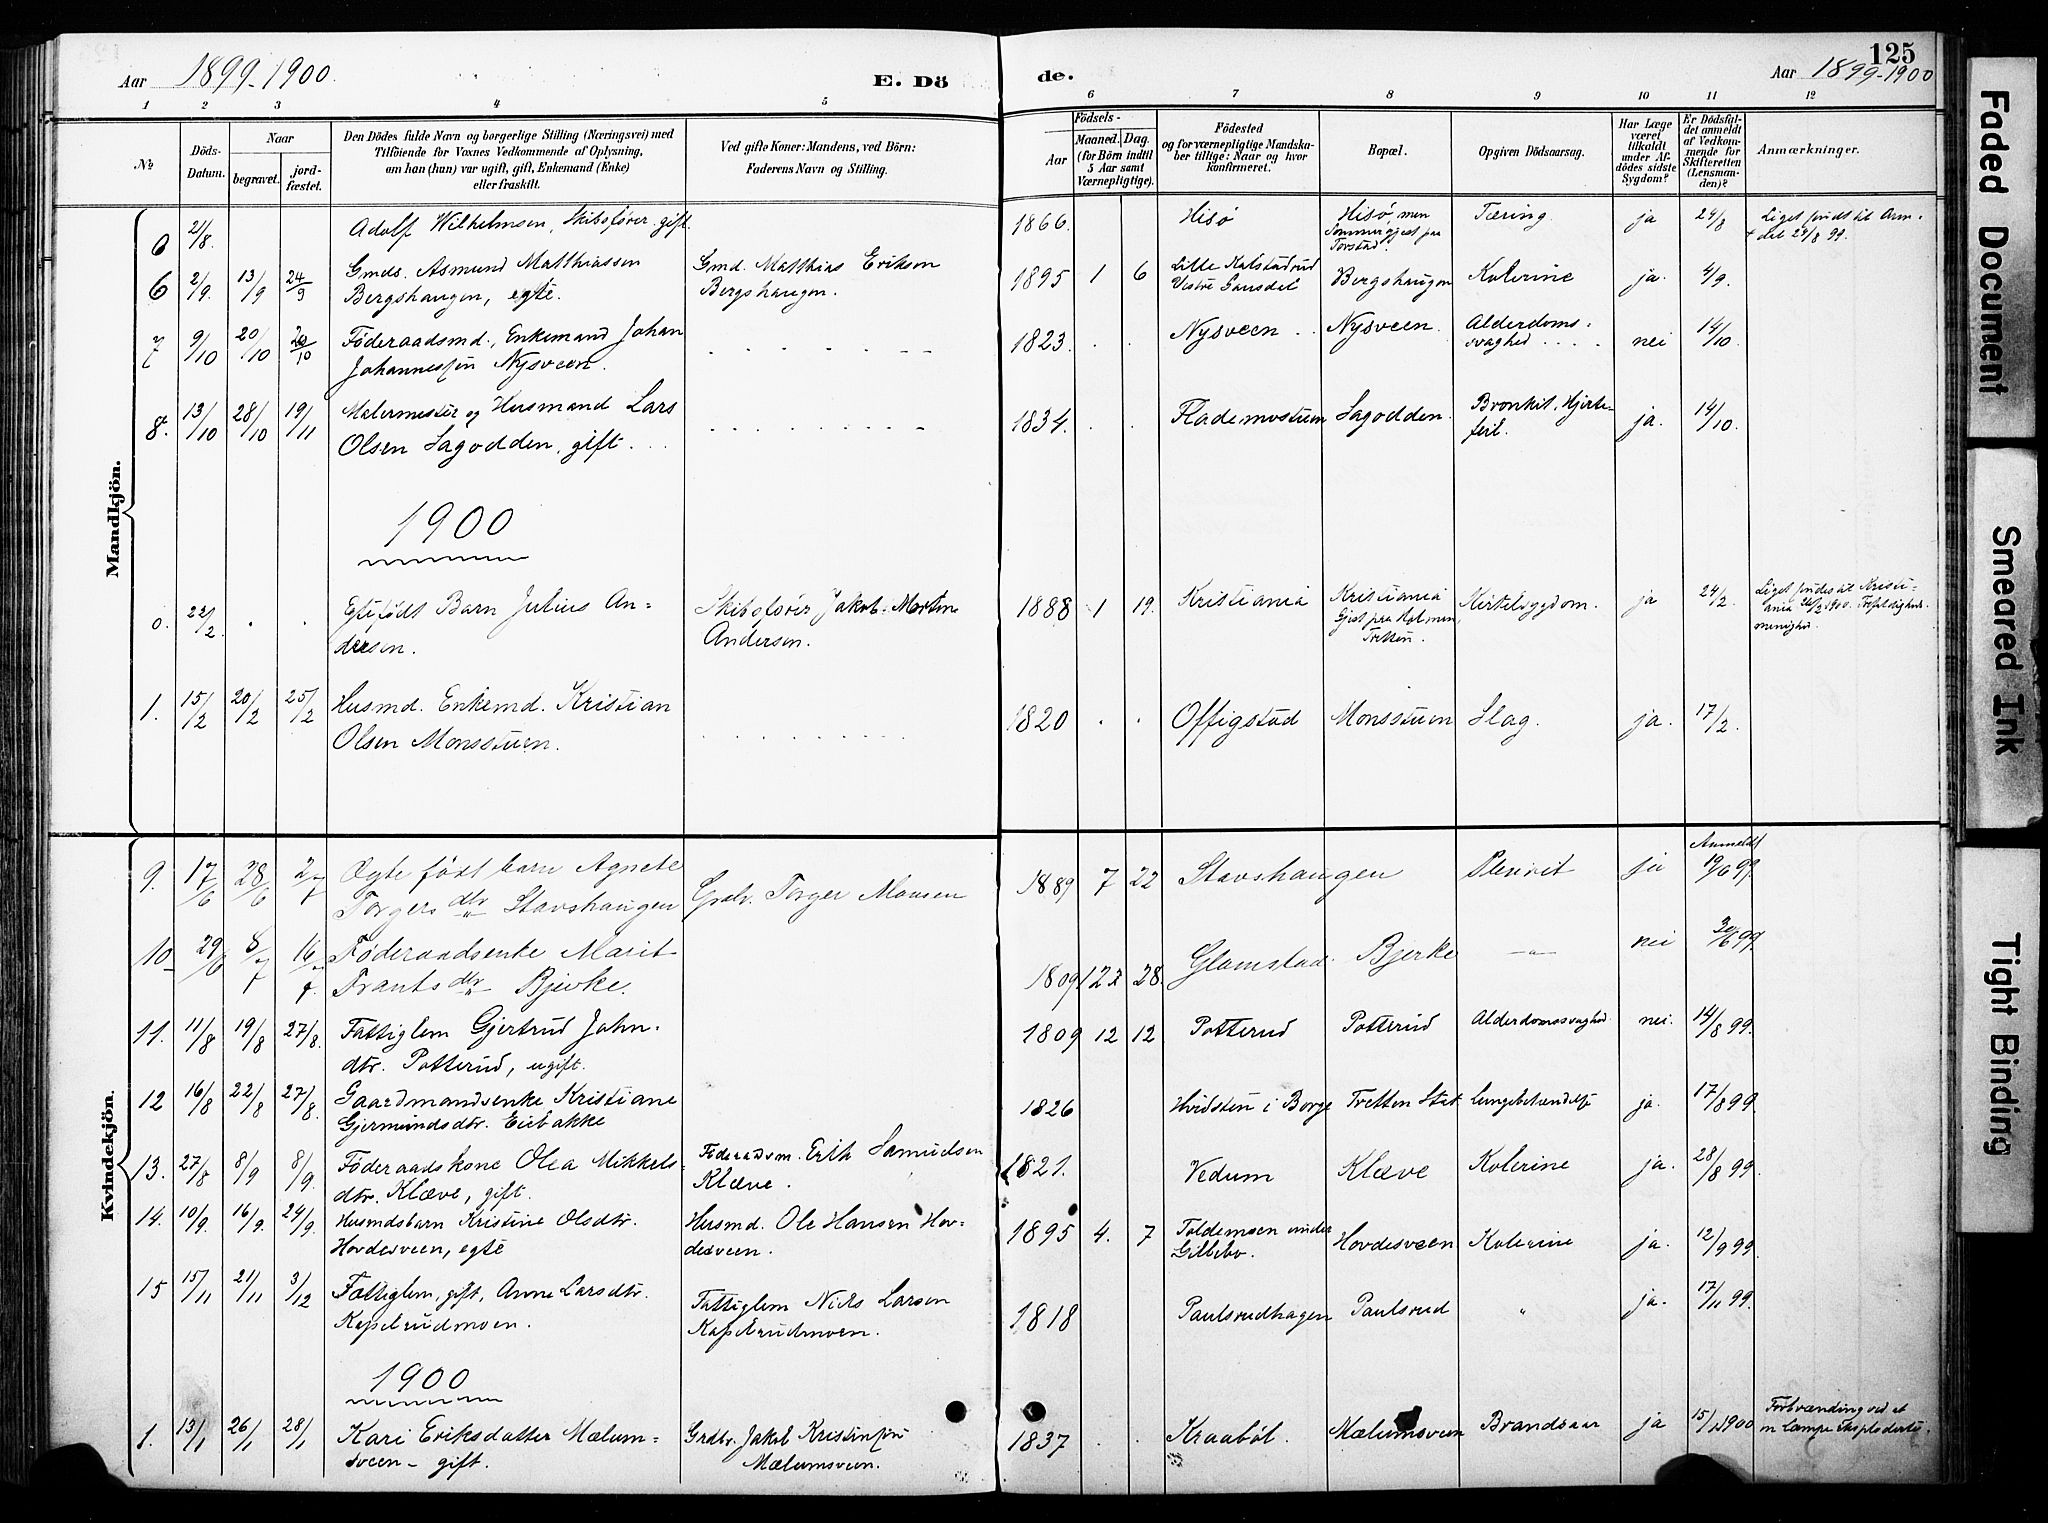 125
Aar 1899-1900.
E. Dö
de.
Aar 1899-1900
1 2 3 4 5
6 7 8 9 10 11 12
No
Döds-Datum.
Naar
begravet.
jord-fæstet.
Den Dödes fulde Navn og borgerlige Stilling (Næringsvei) med
Tilföiende for Voxnes Vedkommende af Oplysning,
om han (hun) var ugift, gift, Enkemand (Enke)
eller fraskilt.
Ved gifte Koner: Mandens, ved Börn:
Faderens Navn og Stilling.
Födsels-
Aar
Maaned. Dag.
(for Börn indtil
5 Aar samt
Værnepligtige).
Födested
og for værnepligtige Mandska-
ber tillige: Naar og hvor
konfirmeret.
Bopæl.
Opgiven Dödsaarsag.
Har Læge
været
tilkaldt
under Af-
dödes sidste
Sygdom?
Er Dödsfal-
det anmeldt
af Vedkom-
mende for
Skifteretten
(Lensman-
den)?
Anmærkninger.
Mandkjön.
0 21/8. Adolf Wilhelmsen, Skibsfører. gift. 1866. Hisø Hisø, men Sommergjest paa Torstad. Tæring. ja 24/8 Liget sendt til Aren-
del 24/8 99.
6 2/9. 13/9 24/9 Gmds. Asmund Matthiassen
Bergshaugen, egte. Gmd. Matthias Erikson
Bergshaugen. 1895 1 6 Lille Kalstadrud
Vestre Gausdal Bergshaugen Kolerine ja. 4/9.
7 9/10 20/10 20/10 Føderaadsmd., Enkemand Johan
Johannessøn Nysveen. 1823. Nysveen Nysveen. Alderdoms-
svaghed nei 14/10.
8. 13/10 28/10 19/11 Malermester og Husmand Lars
Olsen Sagodden, gift. 1834. Flademostuen Sagodden. Bronkit. Hjerte-
feil. ja. 14/10.
1900
0. 22/2. Egtefødt Barn Julius An-
dersen. Skibsfører Jakob Martin
Andersen. 1888 1 19. Kristiania Kristiania
Gjest paa Holmen,
Tretten. Kirtelsygdom. ja 24/2. Liget sendes til Kristi-
ania 26/2 1900. Trefoldigheds
menighed.
1. 15/2 20/2 25/2 Husmd. Enkemd. Kristian
Olsen Monsstuen. 1820 Offigstad Monsstuen Slag. ja. 17/2.
Kvindekjön.
9. 17/6 28/6 2/7 Ægte født barn Agnete
Torgersdtr Stavshaugen Torger Monsen 1889 7 22 Stavshaugen Plevrit ja Anmeldt
19/6 99
10 29/6 8/7 16/7. Føderaadsenke Marit
Frantsdtr Bjerke. 1809 12 28. Glomstad. Bjerke -"- nei 30/6 99
11. 11/8 19/8 27/8. Fattiglem Gjertrud John-
dtr. Potterud, ugift. 1809 12 12 Potterud Potterud Alderdomssvaghed nei. 14/8 99.
12 16/8 22/8 27/8. Gaardmandsenke Kristiane
Gjermundsdtr. Eiebakke 1826 Hvidsten i Borge Tretten Stat. Lungebetændelse ja. 17/8 99.
13. 27/8 8/9 8/9. Føderaadskone Olea Mikkels-
dtr. Klæve, gift. Føderaadsm. Erik Samuelsen
Klæve. 1821. Vedum Klæve Kolerine ja. 28/8 99.
14. 10/9. 16/9. 24/9 Husmdsbarn Kristine Olsdtr.
Hovdesveen, egte Husmd. Ole Hansen Hov-
desveen. 1895 4. 7 Toldemoen under
Gillebo. Hovdesveen Kolerine ja. 12/9 99.
15 15/11 21/11 3/12 Fattiglem, gift, Anne Larsdtr.
Kapelrudmoen. Fattiglem Niels Larsen
Kapelrudmoen. 1818 Paulsrudhagen Paulsrud " ja. 17/11 99.
1900
1. 13/1 26/1 28/1 Kari Eriksdatter Mælum-
sveen - gift. Grdbr. Jakob Kristinsøn
Mælumsveen. 1837 Kraabøl. Mælumsveen Brandsaar ja 15/1 1900 Forbrænding ved at
en Lampe Eksploderte.
Faded Document
Smeared Ink
Tight Binding